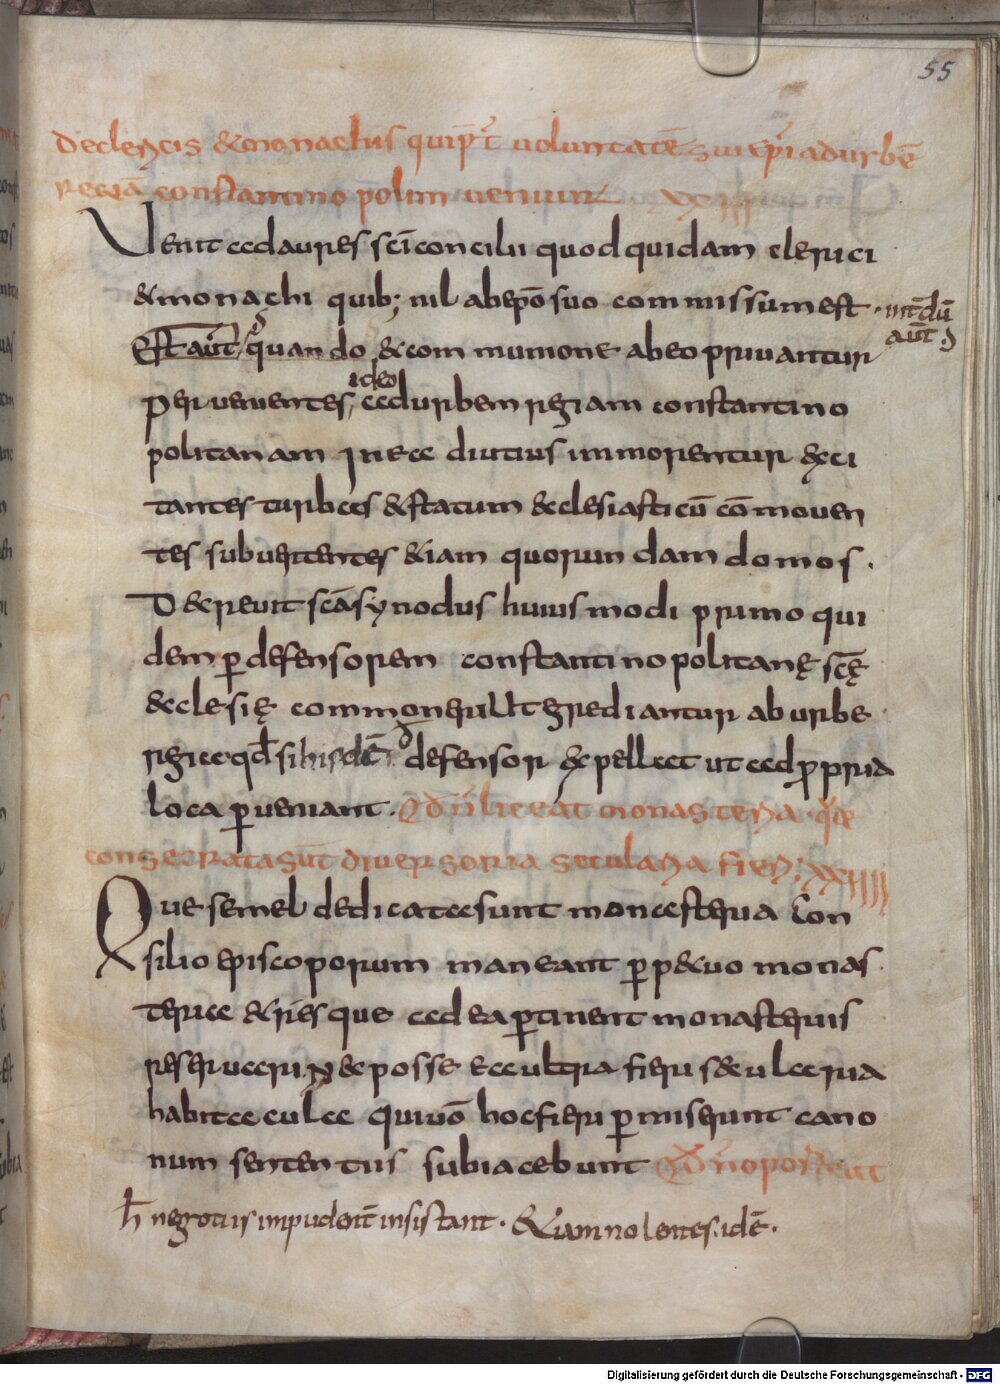 55
De clericis & monachis qui p̄t uoluntatē sui ep̄i ad urbē
regiā constantinopolim ueniunt XXIII
Uenit ad aures sc̄i concilii quod quidam clerici
& monachi quib; nil ab ep̄o suo commissum est · int̄dū
aut̄
Est aut̄ quando & communione ab eo priuantur
ideo
peruenientes ad urbem regiam constantino
politanam In ea diutius immorentur exci
tantes turbas & statum &clesiasticū cōmouen
tes subuertentes &iam quorundam domos ·
D&reuit sc̄a synodus huiusmodi primo qui
dem p defensorem constantinopolitanę sc̄ę
&clesię commoneri ut egrediantur ab urbe
regia qđ si hisdē defensor expellat ut ad ppria
loca pueniant · Qđ n̄ liceat monasteria · que
consecrata sūt diuersoria secularia fieri; XXIIII
Que semel dedicata sunt monasteria Con
silio episcoporum maneant pp&uo monas
teria & res que ad ea ptinent monasteriis
reseruari N&posse ea ultra fieri s&ularia
habitacula qui uō hoc fieri pmiserunt cano
num sententiis subiacebunt Qđ n̄ oporteat
h̄ negotiis impudent̄ insistant · &iam nolentes · idē ·
Digitalisierung gefördert durch die Deutsche Forschungsgemeinschaft - DFG